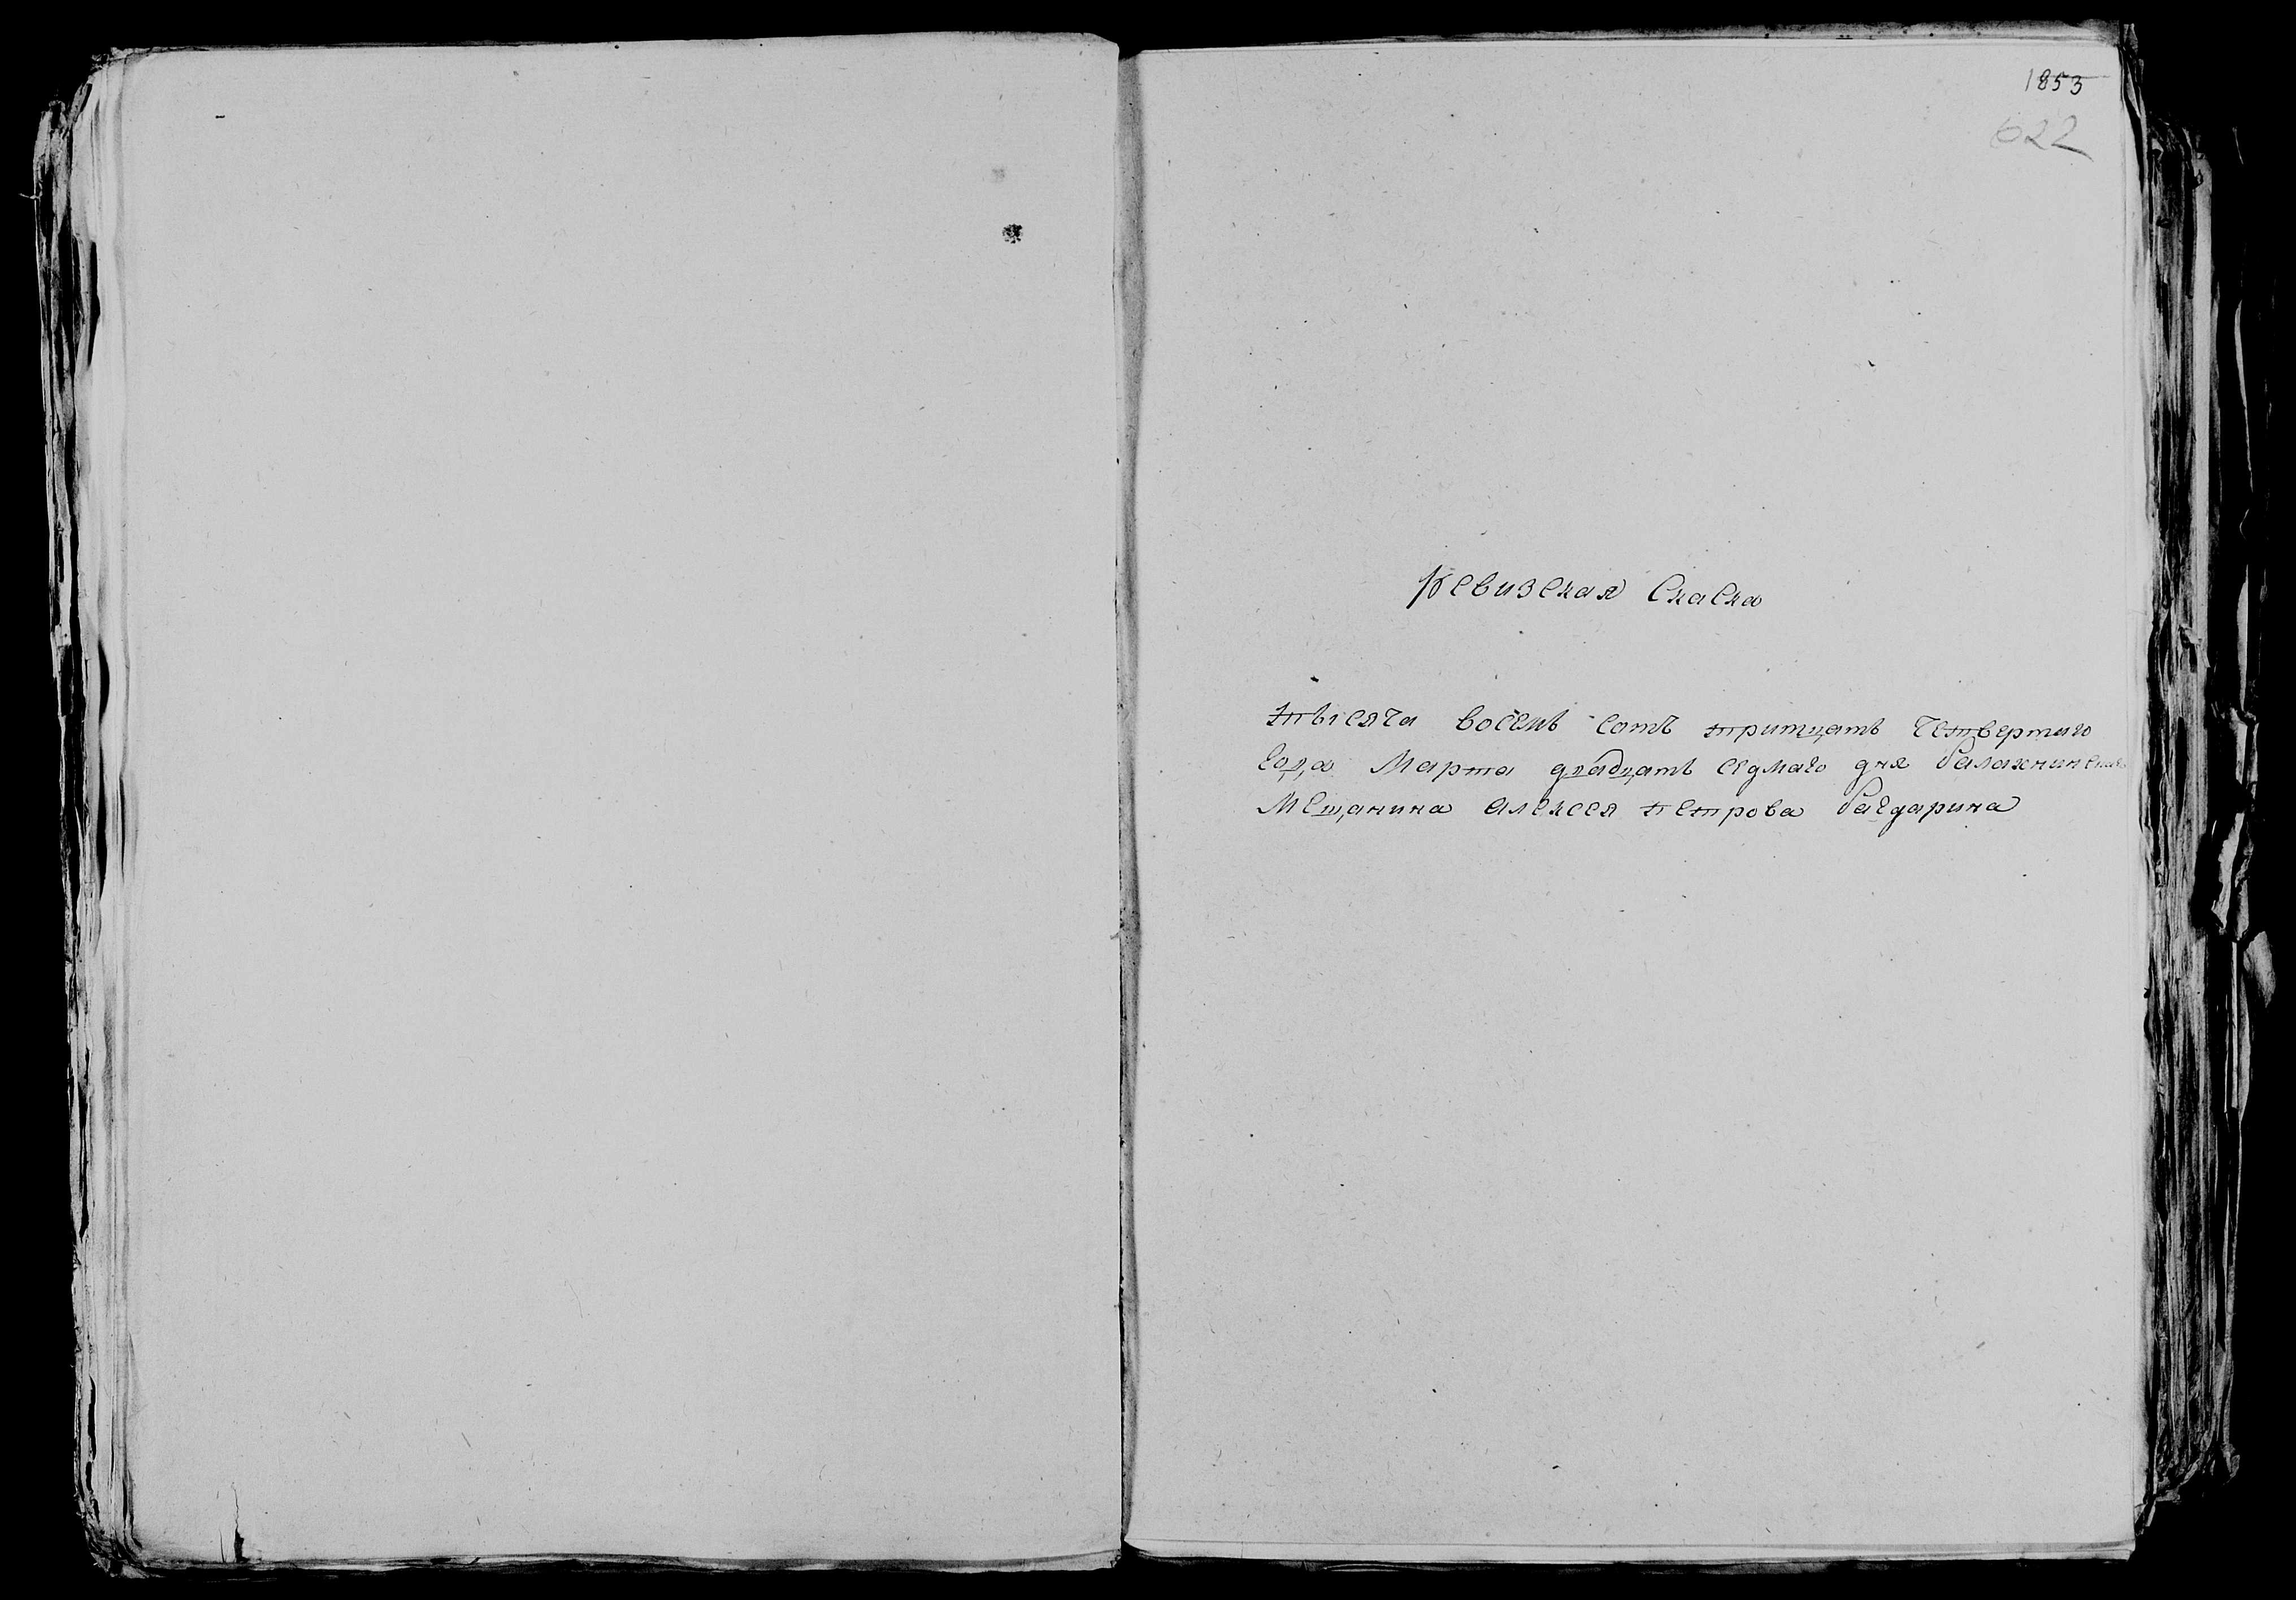 1853
622
Ревизская Скаска
тысяча восемь сотъ тритцать четвертаго
года Марта двадцать седмаго дня балахнинскаго
Мещанина алексея петрова